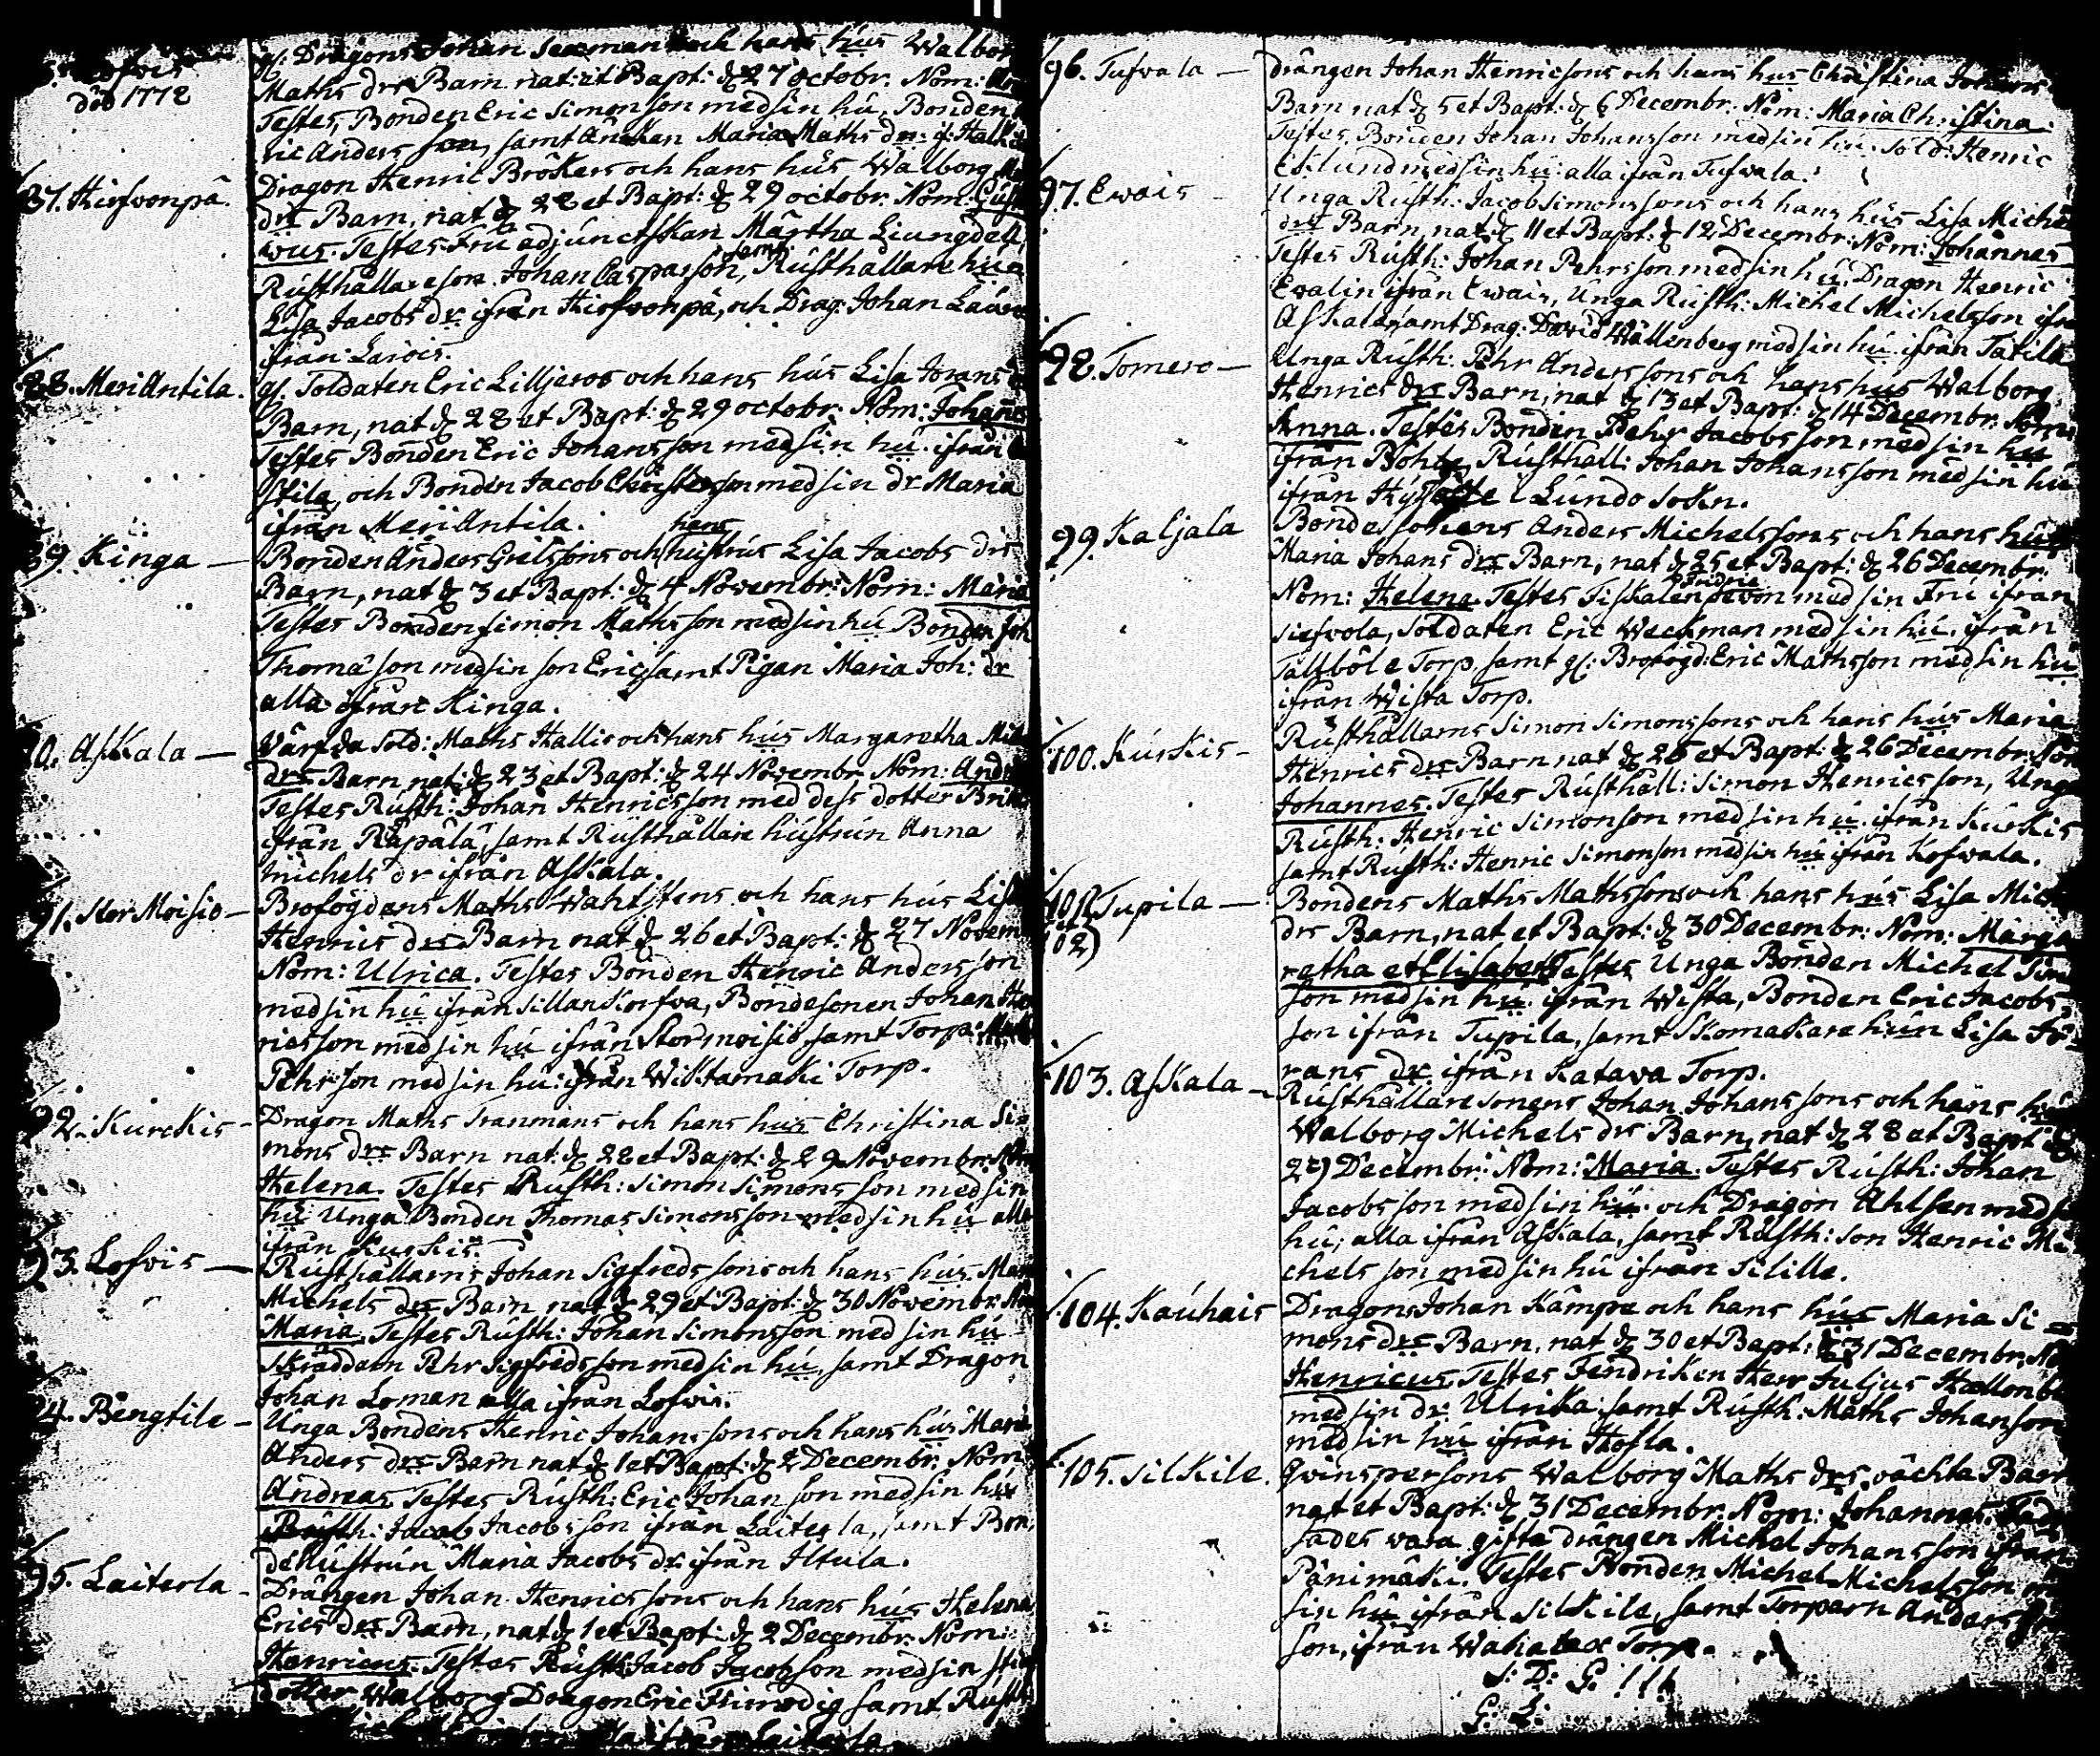 död 1772
gl: Dragons Johan Sexman och hans hús Walbor
Maths drs Barn nat: et Bapt: d 27 octobr. Nom:
Testes, Bonden Eric Simonsson med sin hú, Bonden
ric Andersson, samt Änckan Maria Maths dr.
87. Hirfvonpä.
Dragon Henric Brökers och hans hús Walborg
drs Barn, nat d 28 et Bapt: d 29 octobr. Nom: Gústa
vus. Testes Frú adjúnctskan Märtha Liungdell,
Rústhållareson Johan Casparsson, samt Rústhållare hú
Lisa Jacobs dr ifrån Hirfvonpä, och Drag: Johan
ifrån Larois.
88. Meri Antila.
gl. Soldaten Eric Lilljeroos och hans hús Lisa Jörans
Barn, nat d 28 et Bapt: d 29 octobr. Nom: Johannes
Testes Bonden Eric Johansson med sin hú. ifrån
stila, och Bonden Jacob Christersson med sin dr Maria
ifrån Meri Antila.
89. Kinga —
Bonden Anders Grelssons och hans hústrús Lisa Jacobs drs
Barn, nat d 3 et Bapt: d 4 Novembr: Nom: Maria
Testes Bonden Simon Mathsson med sin hú Bonden Joh
Thomasson med sin son Eric, samt Pigan Maria Joh: dr
alla ifrån Kinga.
90. Askala —
Värfda Sold: Maths Hallis och hans hús Margaretha
drs Barn nat: d 23 et Bapt: d 24 Novembr Nom: Andr
Testes Rústh: Johan Henricsson med dess dotter Brita
ifrån Rapala, samt Rústhållare hústrún Anna
Michels dr ifrån Askala.
91. Stor Moisio —
Brofogdens Maths Wahlstens och hans hús Lisa
Henrics drs Barn nat d 26 et Bapt: d 27 Novem
Nom: Ulrica. Testes Bonden Henric Andersson
med sin hú ifrån Sillankorfva, Bondesonen Johan Hen
ricsson med sin hú ifrån Stormoisio, samt Torp:
Pehrson med sin hú: ifrån Wiktamaki Torp.
92. Kurckis —
Dragon Maths Tranmans och hans hús Christina Si
mons drs Barn nat: d 28 et Bapt: d 29 Novembr: Nom
Helena. Testes Rústh: Simon Simonsson med sin
hú Unga Bonden Thomas Simonsson med sin hú alla
ifrån Kurkis.
93. Lofvis —
Rústhållarns Johan Sigfredssons och hans hús. Mar
Michels drs Barn nat d 29 et Bapt: d 30 Novembr.
Maria. Testes Rústh: Johan Simonsson med sin hú
Skräddarn Pehr Sigfredsson med sin hú, samt Dragon
Johan Loman alla ifrån Lofvis.
94. Bengtile —
Unga Bondens Henric Johanssons och hans hús Maria
Anders drs Barn nat d 1 et Bapt: d 2 Decembr. Nom
Andreas. Testes Rústh: Eric Johansson med sin hú
Rústh: Jacob Jacobsson ifrån Laiterla, samt Bon
dehústrún Maria Jacobs dr ifrån Iltula.
95. Laiterla —
Drängen Johan Henricssons och hans hús Helena
Erics drs Barn, nat d 1 et Bapt: d 2 Decembr. Nom:
Henricus. Testes Rústh: Jacob Jacobsson med sin
dotter Walborg Dragon Eric Himodig samt Rústh
96. Tufvala —
drängen Johan Henricsons och hans hus Christina Johans
Barn nat d 5 et Bapt: d 6 Decembr. Nom: Maria Christina.
Testes. Bonden Johan Johansson med sin hú. Sold: Henric
Eklund med sin hú: alla ifrån Tufwala.
97. Ewais —
Unga Rústh: Jacob Simonssons och hans hús Lisa Michels
drs Barn, nat d 11 et Bapt: d 12 Decembr: Nom: Johannes
Testes Rústh: Johan Pehrsson med sin hú, Dragon Henric
Ewalin ifrån Ewais, Unga Rústh: Michel Michelsson ifrå
Askala, samt Drag: David Wallenberg med sin hú. ifrån Tätilä
98. Tomero —
Unga Rústh: Pehr Anderssons och hans hus Walborg
Henrics drs Barn, nat d 13 et Bapt: d 14 Decembr. Nom:
Anna. Testes Bonden Pehr Jacobsson med sin hú
ifrån Pohto, Rústhåll: Johan Johansson med sin hú
ifrån i Lúndo Sokn.
99. Kaljala
Bondesonens Anders Michelssons och hans hús
Maria Johans drs Barn, nat d 25 et Bapt: d 26 Decembr.
Nom: Helena. Testes Fiskalen Fridric Sevon med sin Frú ifrån
Siefvola, Soldaten Eric Weckman med sin hú. ifrån
Tallböle Torp, samt gl: Brofogd: Eric Mathsson med sin hú
ifrån Wista Torp.
100. Kúrkis —
Rústhållarns Simon Simonssons och hans hús Maria
Henrics drs Barn nat d 25 et Bapt: d 26 Decembr: Nom
Johannes. Testes Rústhåll: Simon Henricsson, Unga
Rústh: Henric Simonson med sin hú. ifrån Kúrkis
samt Rústh: Henric Simonson med sin hú ifrån Kofwala.
101 et 102) Tupila —
Bondens Maths Mathssons och hans hús Lisa Mich
drs Barn, nat et Bapt: d 30 Decembr: Nom: Marga
retha et Elisabeth Testes Unga Bonden Michel Sim
son med sin hú. ifrån Wista, Bonden Eric Jacobs
son ifrån Tupila, samt Skomakare hún Lisa Jö
rans dr. ifrån Katava Torp.
103. Askala —
Rústhållaresonens Johan Johanssons och hans hú
Walborg Michels drs Barn, nat d 28 et Bapt: d
29) Decembr: Nom: Maria. Testes Rústh: Johan
Jacobsson med sin hú. och Dragon Ahlsen med s
hú, alla ifrån Askala, samt Rústh: son Henric Mi
chelsson med sin hú ifrån Silille.
104. Kaúhais
Dragons Johan Kämpe och hans hús Maria Si
mons drs Barn, nat d 30 et Bapt: d 31 Decembr. No
Henricus. Testes Fendriken Herr Juljus Hallonbl
med sin dr. Ulrika samt Rústh: Maths Johanson
med sin hú ifrån Hofla.
105. Silkile.
Qvinspersons Walborg Maths drs oächta Barn
nat et Bapt: d 31 Decembr. Nom: Johannes.
fades vara gifta drängen Michel Johansson ifrån
Pänimäki. Testes Bonden Michel Michelsson
sin hú ifrån Silkile, samt Torparn Anders
son, ifrån Torp.
S: D: G: !!!